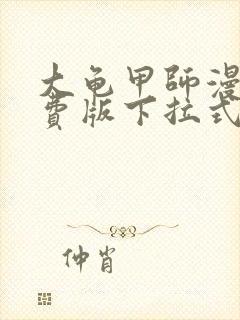 大龟甲師漫
費版下拉式
仲肖